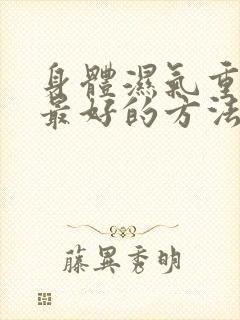 身體濕氣重
最好的方法
藤異秀明